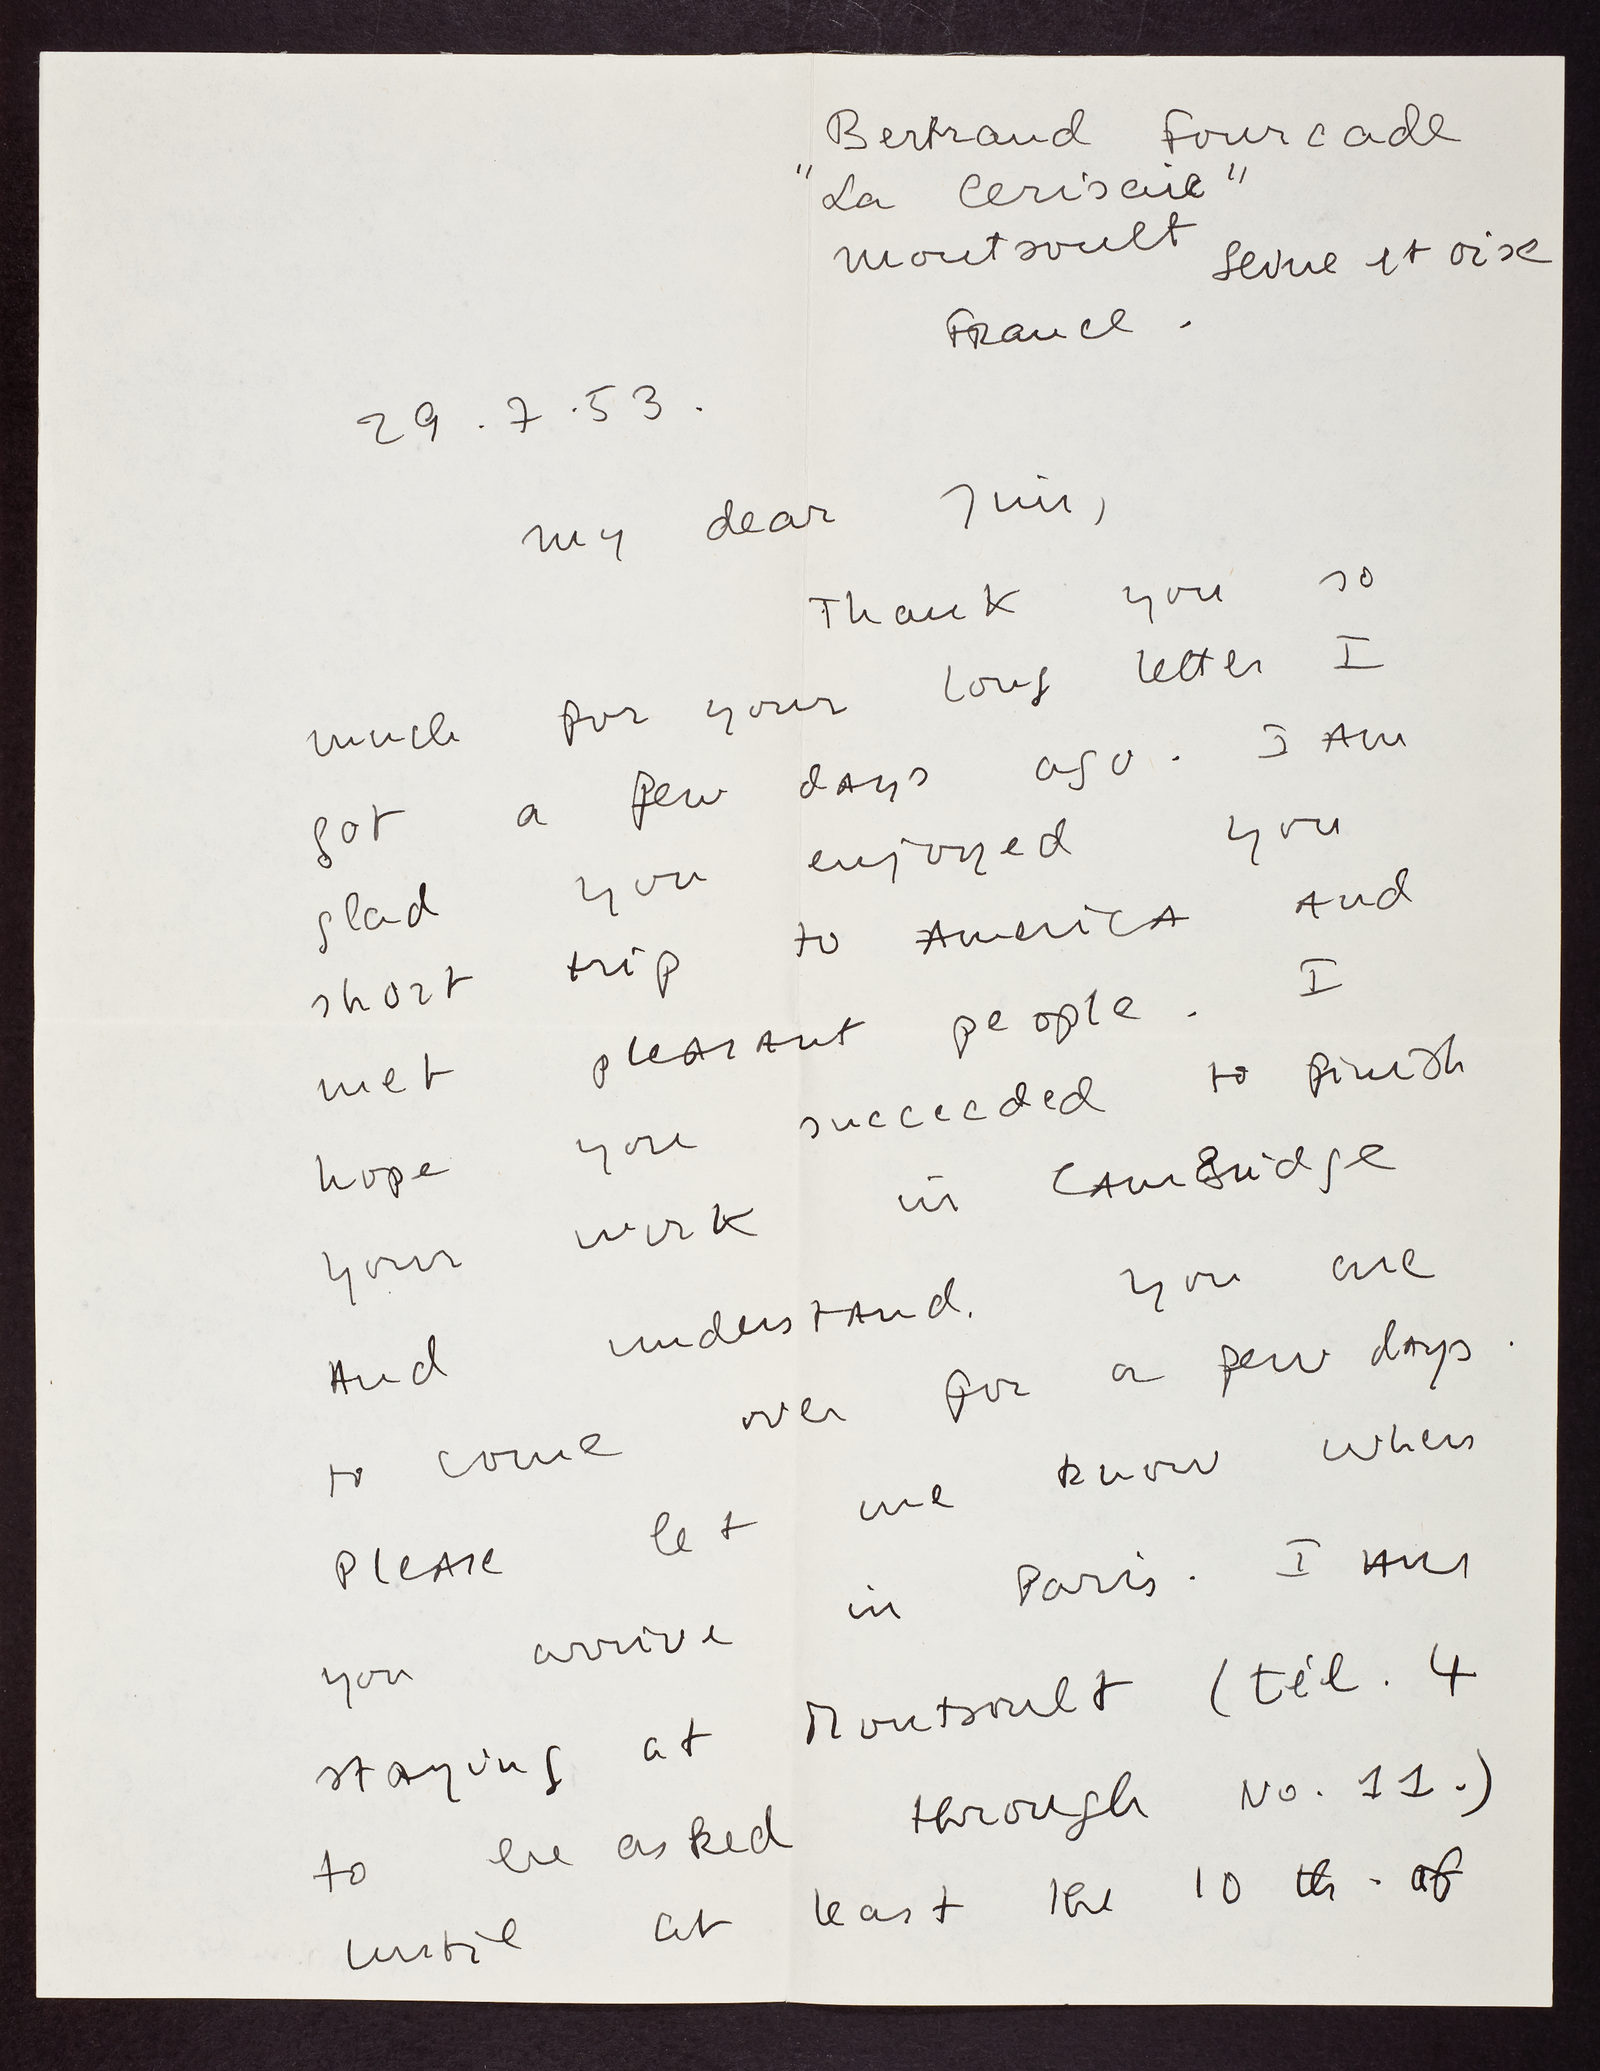 Bertrand Fourcade
"La Cerisaie"
Montsoult Seine et Oise
France.
29.7.53.
My dear Jim,
Thank you so
much for your long letter I
got a few days ago. I am
glad you enjoyed you
short trip to America and
met pleasant people. I
hope you succeeded to finish
your work in Cambridge
and understand you are
to come over for a few days.
Please let me know when
you arrive in Paris. I am
staying at Montsoult (tél. 4
to be asked through No. 11.)
until at least the 10 th. of